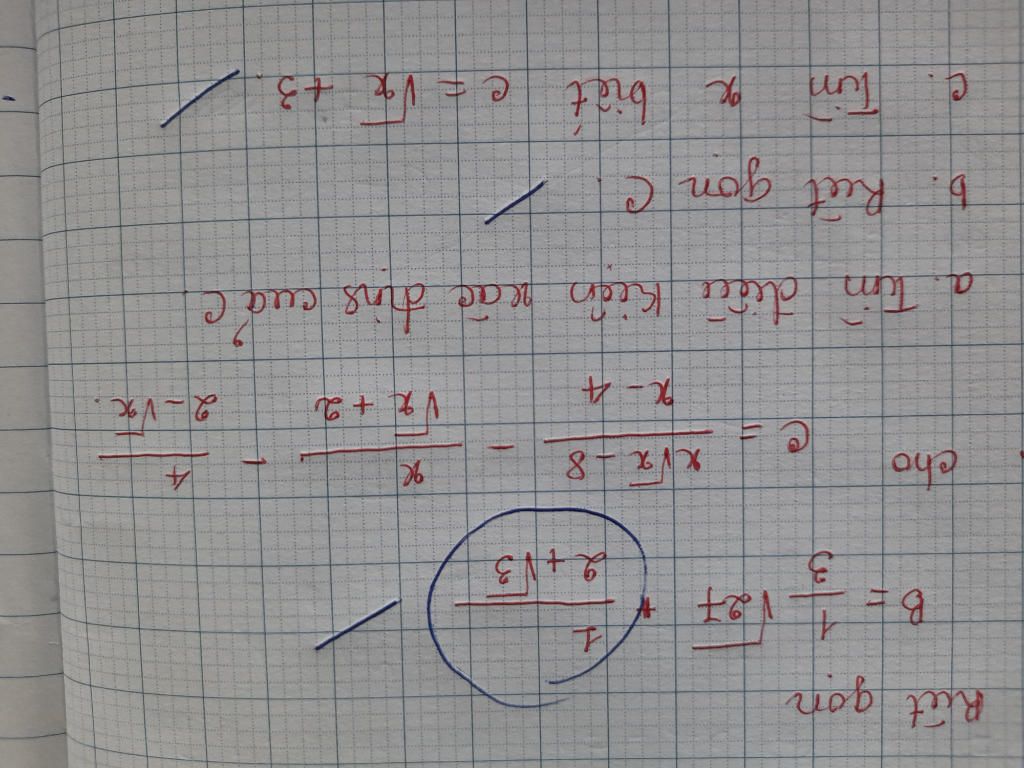 Rút gọn
B = 1/3 √27 + 1/(2 + √3)
cho C = (x√x - 8)/(x - 4) - x/(√x + 2) - 4/(2 - √x).
a. Tìm điều kiện xác định của C.
b. Rút gọn C.
c. Tìm x biết C = √x + 3.